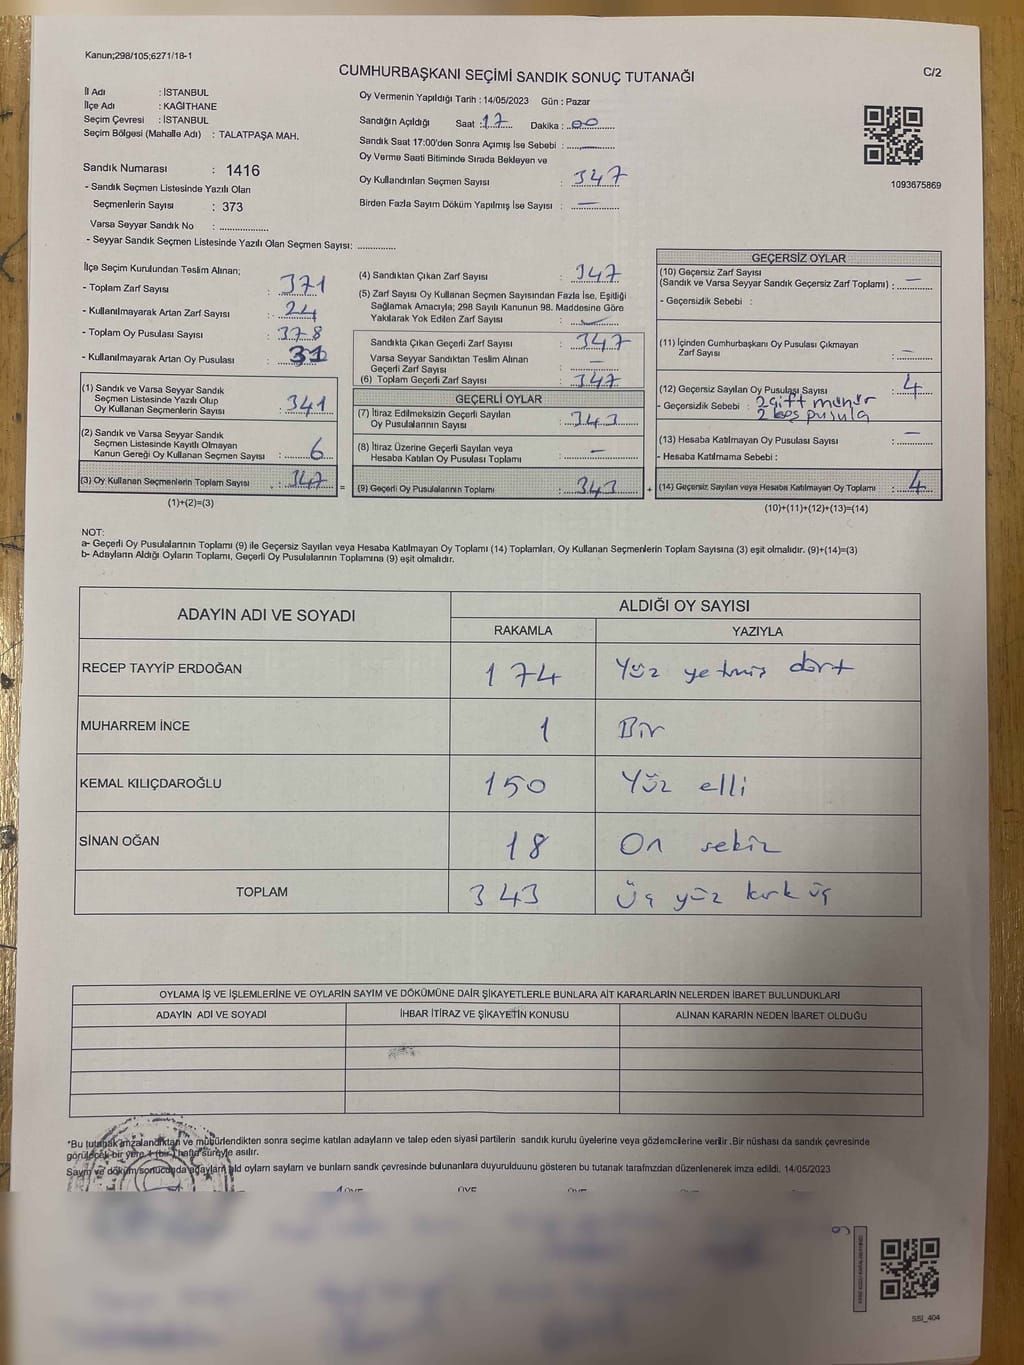 Kanun;298/105;6271/18-1
C/2
CUMHURBAŞKANI SEÇİMİ SANDIK SONUÇ TUTANAĞI
İl Adı : İSTANBUL
İlçe Adı : KAĞITHANE
Seçim Çevresi : İSTANBUL
Seçim Bölgesi (Mahalle Adı) : TALATPAŞA MAH.
Sandık Numarası : 1416
- Sandık Seçmen Listesinde Yazılı Olan
Seçmenlerin Sayısı : 373
Varsa Seyyar Sandık No : ..................
- Seyyar Sandık Seçmen Listesinde Yazılı Olan Seçmen Sayısı: ..............
Oy Vermenin Yapıldığı Tarih : 14/05/2023 Gün : Pazar
Sandığın Açıldığı Saat : 17 Dakika : 00
Sandık Saat 17:00'den Sonra Açımış İse Sebebi : —
Oy Verme Saati Bitiminde Sırada Bekleyen ve
Oy Kullandırılan Seçmen Sayısı : 347
Birden Fazla Sayım Döküm Yapılmış İse Sayısı : —
1093675869
İlçe Seçim Kurulundan Teslim Alınan;
- Toplam Zarf Sayısı : 371
- Kullanılmayarak Artan Zarf Sayısı : 24
- Toplam Oy Pusulası Sayısı : 378
- Kullanılmayarak Artan Oy Pusulası : 31
(1) Sandık ve Varsa Seyyar Sandık
Seçmen Listesinde Yazılı Olup
Oy Kullanan Seçmenlerin Sayısı : 341
(2) Sandık ve Varsa Seyyar Sandık
Seçmen Listesinde Kayıtlı Olmayan
Kanun Gereği Oy Kullanan Seçmen Sayısı : 6
(3) Oy Kullanan Seçmenlerin Toplam Sayısı : 347
(1)+(2)=(3)
(4) Sandıktan Çıkan Zarf Sayısı : 347
(5) Zarf Sayısı Oy Kullanan Seçmen Sayısından Fazla İse, Eşitliği
Sağlamak Amacıyla; 298 Sayılı Kanunun 98. Maddesine Göre
Yakılarak Yok Edilen Zarf Sayısı : —
Sandıkta Çıkan Geçerli Zarf Sayısı : 347
Varsa Seyyar Sandıktan Teslim Alınan
Geçerli Zarf Sayısı : —
(6) Toplam Geçerli Zarf Sayısı : 347
GEÇERLİ OYLAR
(7) İtiraz Edilmeksizin Geçerli Sayılan
Oy Pusulalarının Sayısı : 343
(8) İtiraz Üzerine Geçerli Sayılan veya
Hesaba Katılan Oy Pusulası Toplamı : —
= (9) Geçerli Oy Pusulalarının Toplamı : 343 +
GEÇERSİZ OYLAR
(10) Geçersiz Zarf Sayısı
(Sandık ve Varsa Seyyar Sandık Geçersiz Zarf Toplamı) : —
- Geçersizlik Sebebi :
(11) İçinden Cumhurbaşkanı Oy Pusulası Çıkmayan
Zarf Sayısı : —
(12) Geçersiz Sayılan Oy Pusulası Sayısı : 4
- Geçersizlik Sebebi : 2 çift mühür
2 boş pusula
(13) Hesaba Katılmayan Oy Pusulası Sayısı : —
- Hesaba Katılmama Sebebi :
(14) Geçersiz Sayılan veya Hesaba Katılmayan Oy Toplamı : 4
(10)+(11)+(12)+(13)=(14)
NOT:
a- Geçerli Oy Pusulalarının Toplamı (9) ile Geçersiz Sayılan veya Hesaba Katılmayan Oy Toplamı (14) Toplamları, Oy Kullanan Seçmenlerin Toplam Sayısına (3) eşit olmalıdır. (9)+(14)=(3)
b- Adayların Aldığı Oyların Toplamı, Geçerli Oy Pusulalarının Toplamına (9) eşit olmalıdır.
ADAYIN ADI VE SOYADI
ALDIĞI OY SAYISI
RAKAMLA YAZIYLA
RECEP TAYYİP ERDOĞAN 174 Yüz yetmiş dört
MUHARREM İNCE 1 Bir
KEMAL KILIÇDAROĞLU 150 Yüz elli
SİNAN OĞAN 18 On sekiz
TOPLAM 343 Üç yüz kırk üç
OYLAMA İŞ VE İŞLEMLERİNE VE OYLARIN SAYIM VE DÖKÜMÜNE DAİR ŞİKAYETLERLE BUNLARA AİT KARARLARIN NELERDEN İBARET BULUNDUKLARI
ADAYIN ADI VE SOYADI İHBAR İTİRAZ VE ŞİKAYETİN KONUSU ALINAN KARARIN NEDEN İBARET OLDUĞU
*Bu tutanak imzalandıktan ve mühürlendikten sonra seçime katılan adayların ve talep eden siyasi partilerin sandık kurulu üyelerine veya gözlemcilerine verilir .Bir nüshası da sandık çevresinde
görülecek bir yere 1 (bir) hafta süreyle asılır.
14/05/2023
ÜYE ÜYE
SSI_404